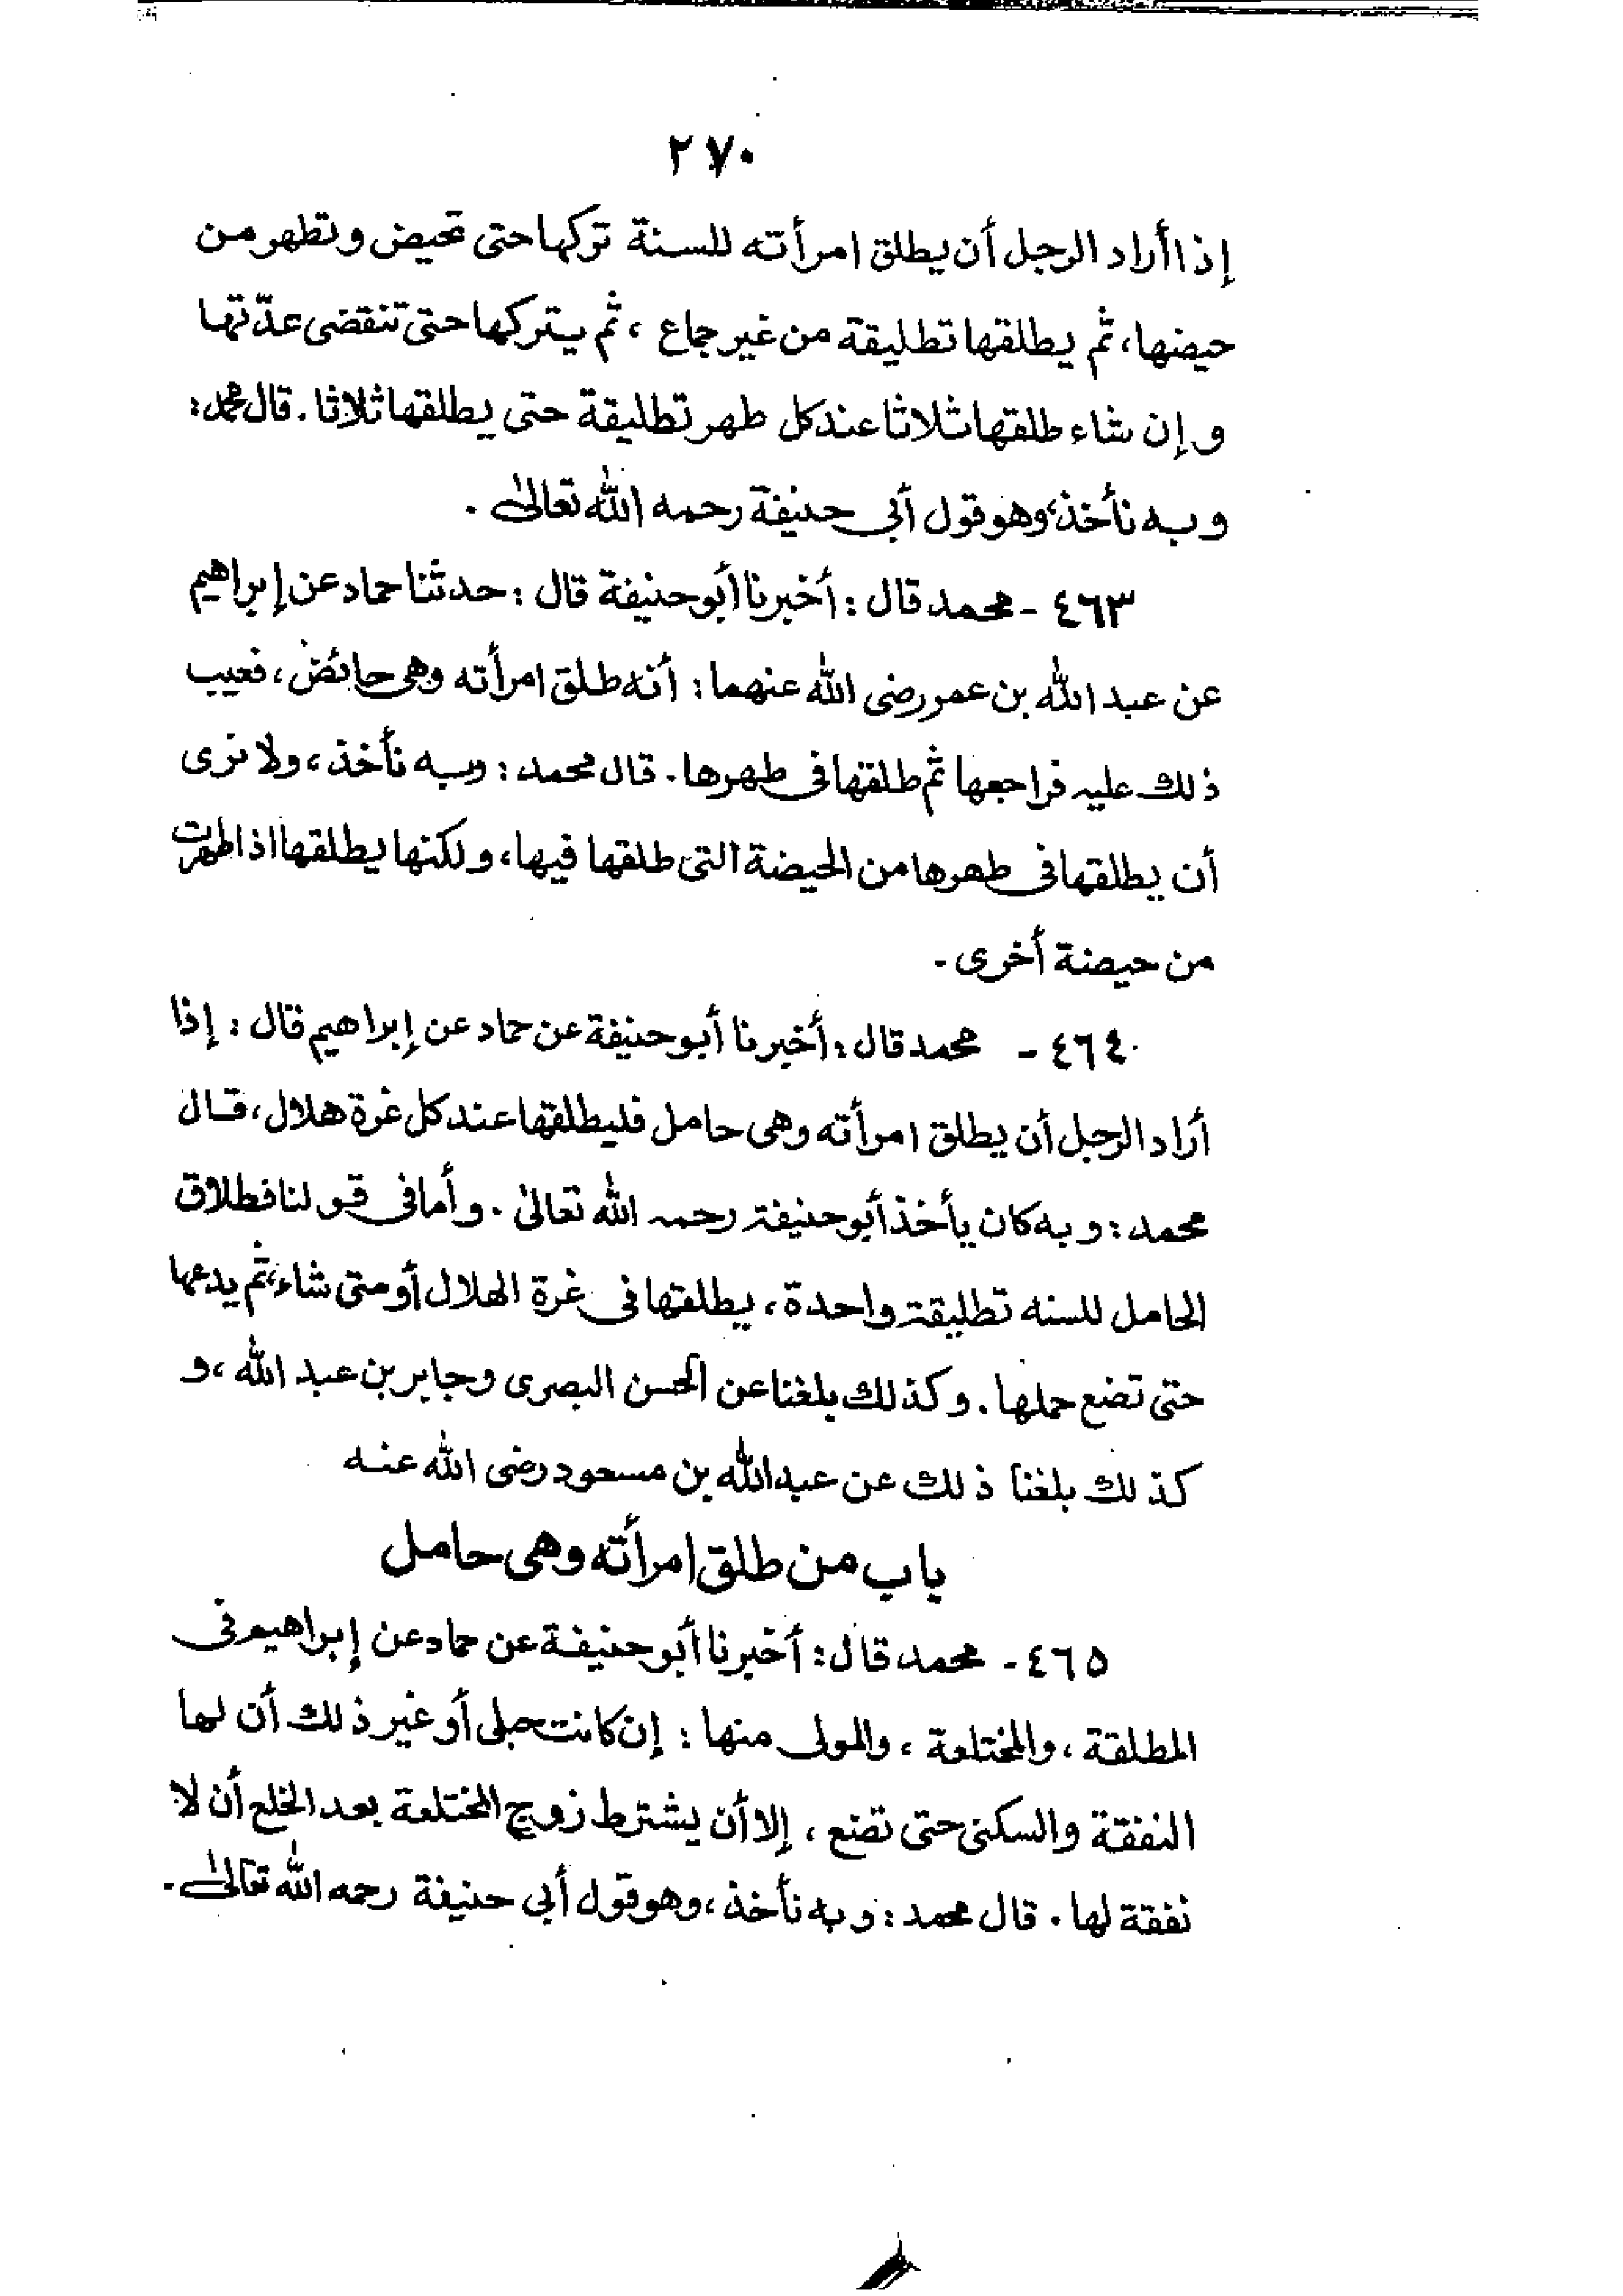 ٢٧٠
إذا أراد الرجل أن يطلق امرأته للسنة تركها حتى تحيض وتطهر من
حيضها، ثم يطلقها تطليقة من غير جماع ، ثم يتركها حتى تنقضى عدّتها
وإن شاء طلقها ثلاثا عند كل طهر تطليقة حتى يطلقها ثلاثا . قال محمد :
وبه نأخذ، وهو قول أبي حنيفة رحمه الله تعالىٰ .
٤٦٣ - محمد قال : أخبرنا أبو حنيفة قال : حدثنا حماد عن إبراهيم
عن عبد الله بن عمر رضى الله عنهما : أنه طلق امرأته وهى حائض ، فعيب
ذلك عليه فراجعها ثم طلقها فى طهرها . قال محمد : وبه نأخذ ، ولا نرى
أن يطلقها فى طهرها من الحيضة التى طلقها فيها ، ولكنها يطلقها اذا طهرت
من حيضة أخرى -
٤٦٤ - محمد قال : أخبرنا أبو حنيفة عن حماد عن إبراهيم قال : إذا
أراد الرجل أن يطلق امرأته وهى حامل فليطلقها عند كل غرة هلال ، قال
محمد : وبه كان يأخذ أبو حنيفة رحمه الله تعالىٰ . وأما فى قولنا فطلاق
الحامل للسنه تطليقة واحدة ، يطلقها فى غرة الهلال أو متى شاء ، ثم يدعها
حتى تضع حملها . وكذلك بلغنا عن الحسن البصرى وجابر بن عبد الله ، و
كذلك بلغنا ذلك عن عبد الله بن مسعود رضى الله عنه
باب من طلق امرأته وهى حامل
٤٦٥ - محمد قال : أخبرنا أبو حنيفة عن حماد عن إبراهيم فى
المطلقة ، والمختلعة ، والمولى منها : إن كانت حبلى أو غير ذلك أن لها
النفقة والسكنى حتى تضع ، إلا أن يشترط زوج المختلعة بعد الخلع أن لا
نفقة لها . قال محمد : وبه نأخذ ، وهو قول أبي حنيفة رحمه الله تعالىٰ -